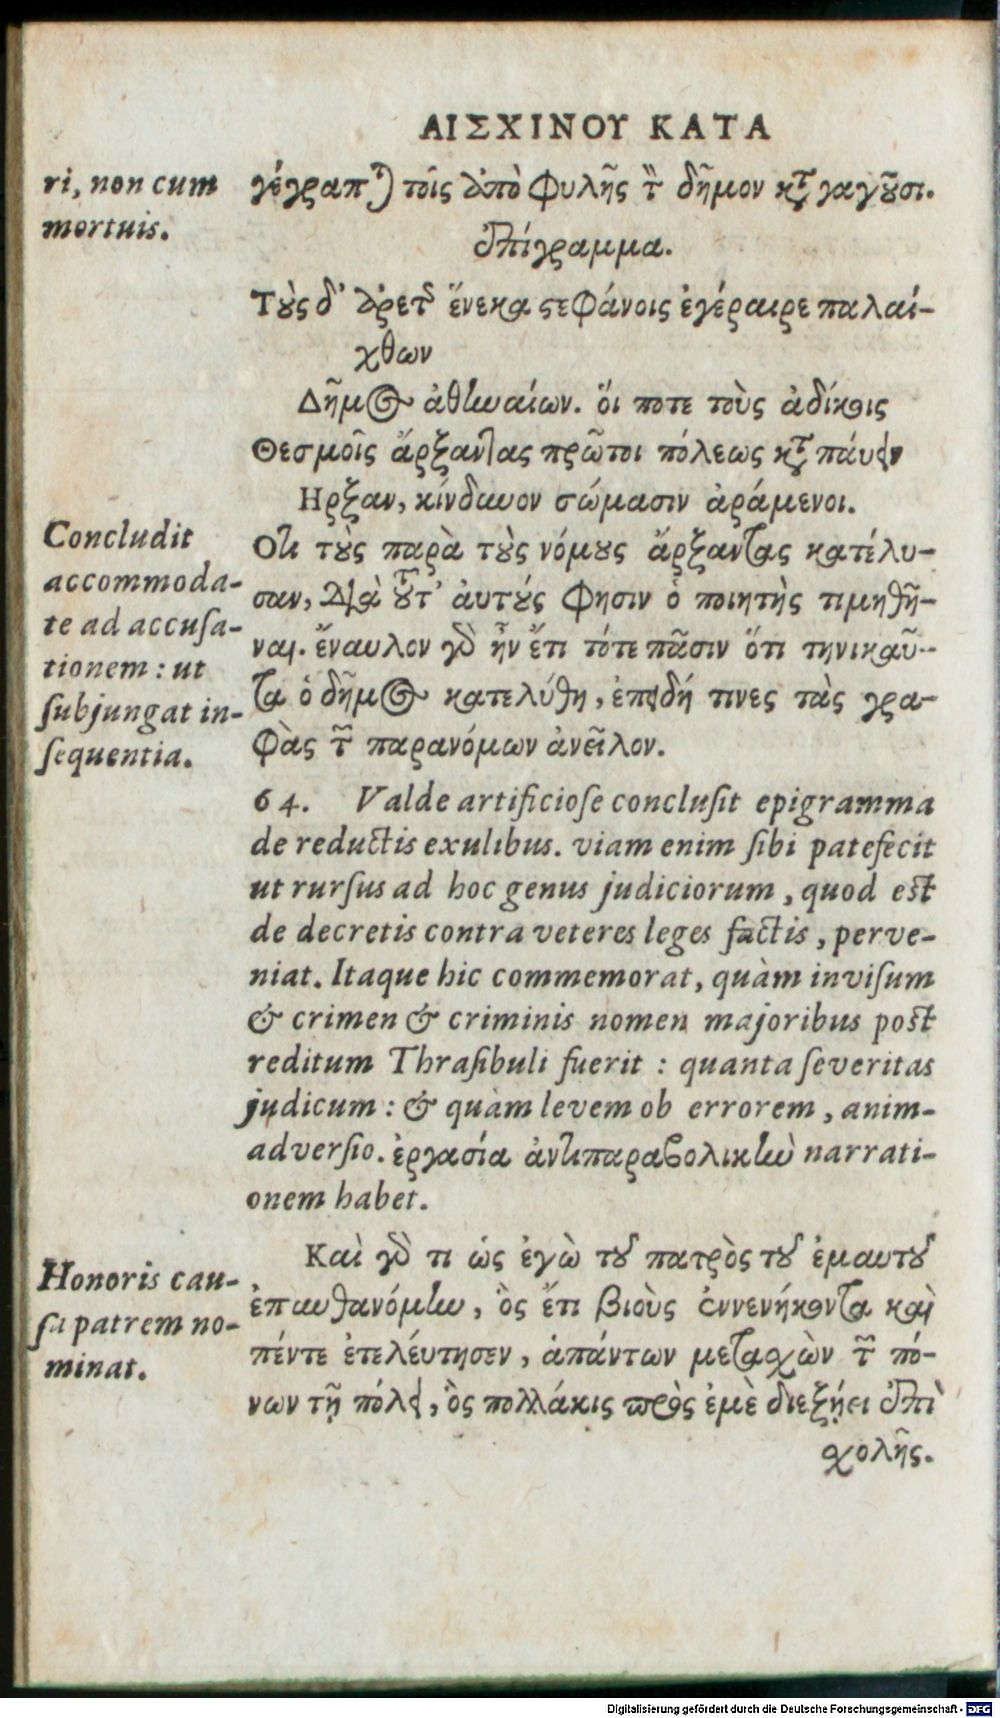 ΑΙΣΧΙΝΟΥ ΚΑΤΑ
ri, non cum
mortuis.
γέγραπ) τοῖς ἀπὸ Φυλῆς τ̀ δῆμον κτ̃ γαγοῦσι.
ἐπίγραμμα.
Τοὺς δ' ἀρετῆς ἕνεκα στεφάνοις ἐγέραιρε παλαί-
χθων
Δῆμος ἀθηναίων. ὅι ποτε τοὺς ἀδίκοις
Θεσμοῖς ἄρξαντας πρῶτοι πόλεως κτ̃ παύειν
Ηρξαν, κίνδυνον σώμασιν ἀράμενοι.
Concludit
accommoda-
te ad accusa-
tionem: ut
subjungat in-
sequentia.
Ὁτι τοὺς παρὰ τοὺς νόμους ἄρξαντας κατέλυ-
σαν, διὰ τοῦτ' ἀυτούς φησιν ὁ ποιητὴς τιμηθῆ-
ναι. ἔναυλον γὰρ ἦν ἔτι τότε πᾶσιν ὅτι τηνικαῦ-
τα ὁ δῆμος κατελύθη, ἐπειδή τινες τὰς γρα-
φὰς τ̃ παρανόμων ἀνεῖλον.
64. Valde artificiose conclusit epigramma
de reductis exulibus. viam enim sibi patefecit
ut rursus ad hoc genus judiciorum, quod est
de decretis contra veteres leges factis, perve-
niat. Itaque hic commemorat, quàm invisum
& crimen & criminis nomen majoribus post
reditum Thrasibuli fuerit: quanta severitas
judicum: & quàm levem ob errorem, anim-
adversio. ἐργασία ἀντιπαραβολικὴν narrati-
onem habet.
Honoris cau-
sa patrem no-
minat.
Καὶ γάρ τι ὡς ἐγὼ τοῦ πατρὸς τοῦ ἐμαυτοῦ
ἐπυνθανόμην, ὃς ἔτι βιοὺς ἐννενήκοντα καὶ
πέντε ἐτελέυτησεν, ἁπάντων μετασχὼν τ̃ πό-
νων τῇ πόλει, ὃς πολλάκις πρὸς ἐμὲ διεξῄει ἐπὶ
σχολῆς.
Digitalisierung gefördert durch die Deutsche Forschungsgemeinschaft - DFG